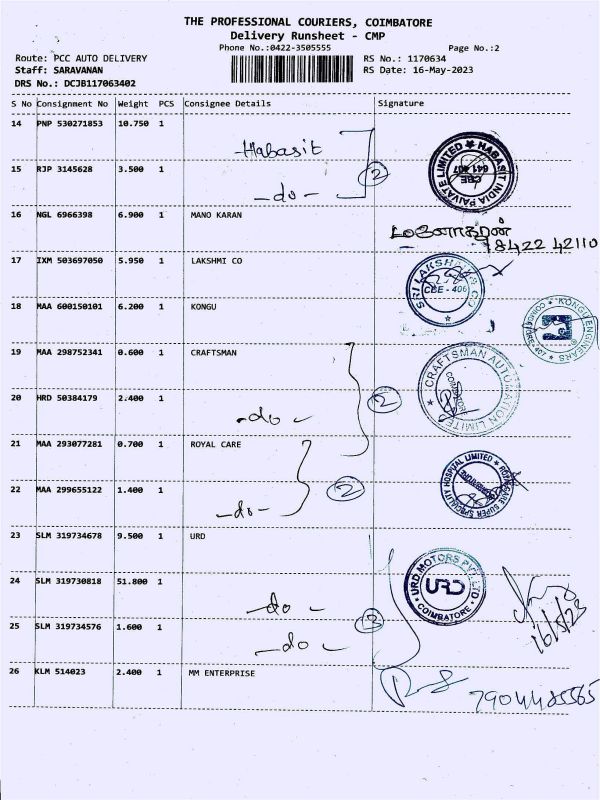 THE PROFESSIONAL COURIERS, COIMBATORE
Delivery Runsheet - CMP
Phone No.:0422-3505555 Page No.:2
Route: PCC AUTO DELIVERY RS No.: 1170634
Staff: SARAVANAN RS Date: 16-May-2023
DRS No.: DCJB117063402
S No Consignment No Weight PCS Consignee Details Signature
14 PNP 530271853 10.750 1
Habasit
HABASIT INDIA PRIVATE LIMITED
CBE 641 407
15 RJP 3145628 3.500 1
2
-do-
16 NGL 6966398 6.900 1 MANO KARAN
மனோகரன்
78422 42110
17 IXM 503697050 5.950 1 LAKSHMI CO
CBE - 406
18 MAA 600150101 6.200 1 KONGU
19 MAA 298752341 0.600 1 CRAFTSMAN
CRAFTSMAN AUTOMATION LIMITED
20 HRD 50384179 2.400 1
2
-do-
21 MAA 293077281 0.700 1 ROYAL CARE
ROYAL CARE SUPER SPECIALITY HOSPITAL LIMITED
22 MAA 299655122 1.400 1
2
-do-
23 SLM 319734678 9.500 1 URD
URD MOTORS PVT LTD
URD
COIMBATORE
24 SLM 319730818 51.800 1
-do-
16/5/23
25 SLM 319734576 1.600 1
3
-do-
26 KLM 514023 2.400 1 MM ENTERPRISE
7904485565